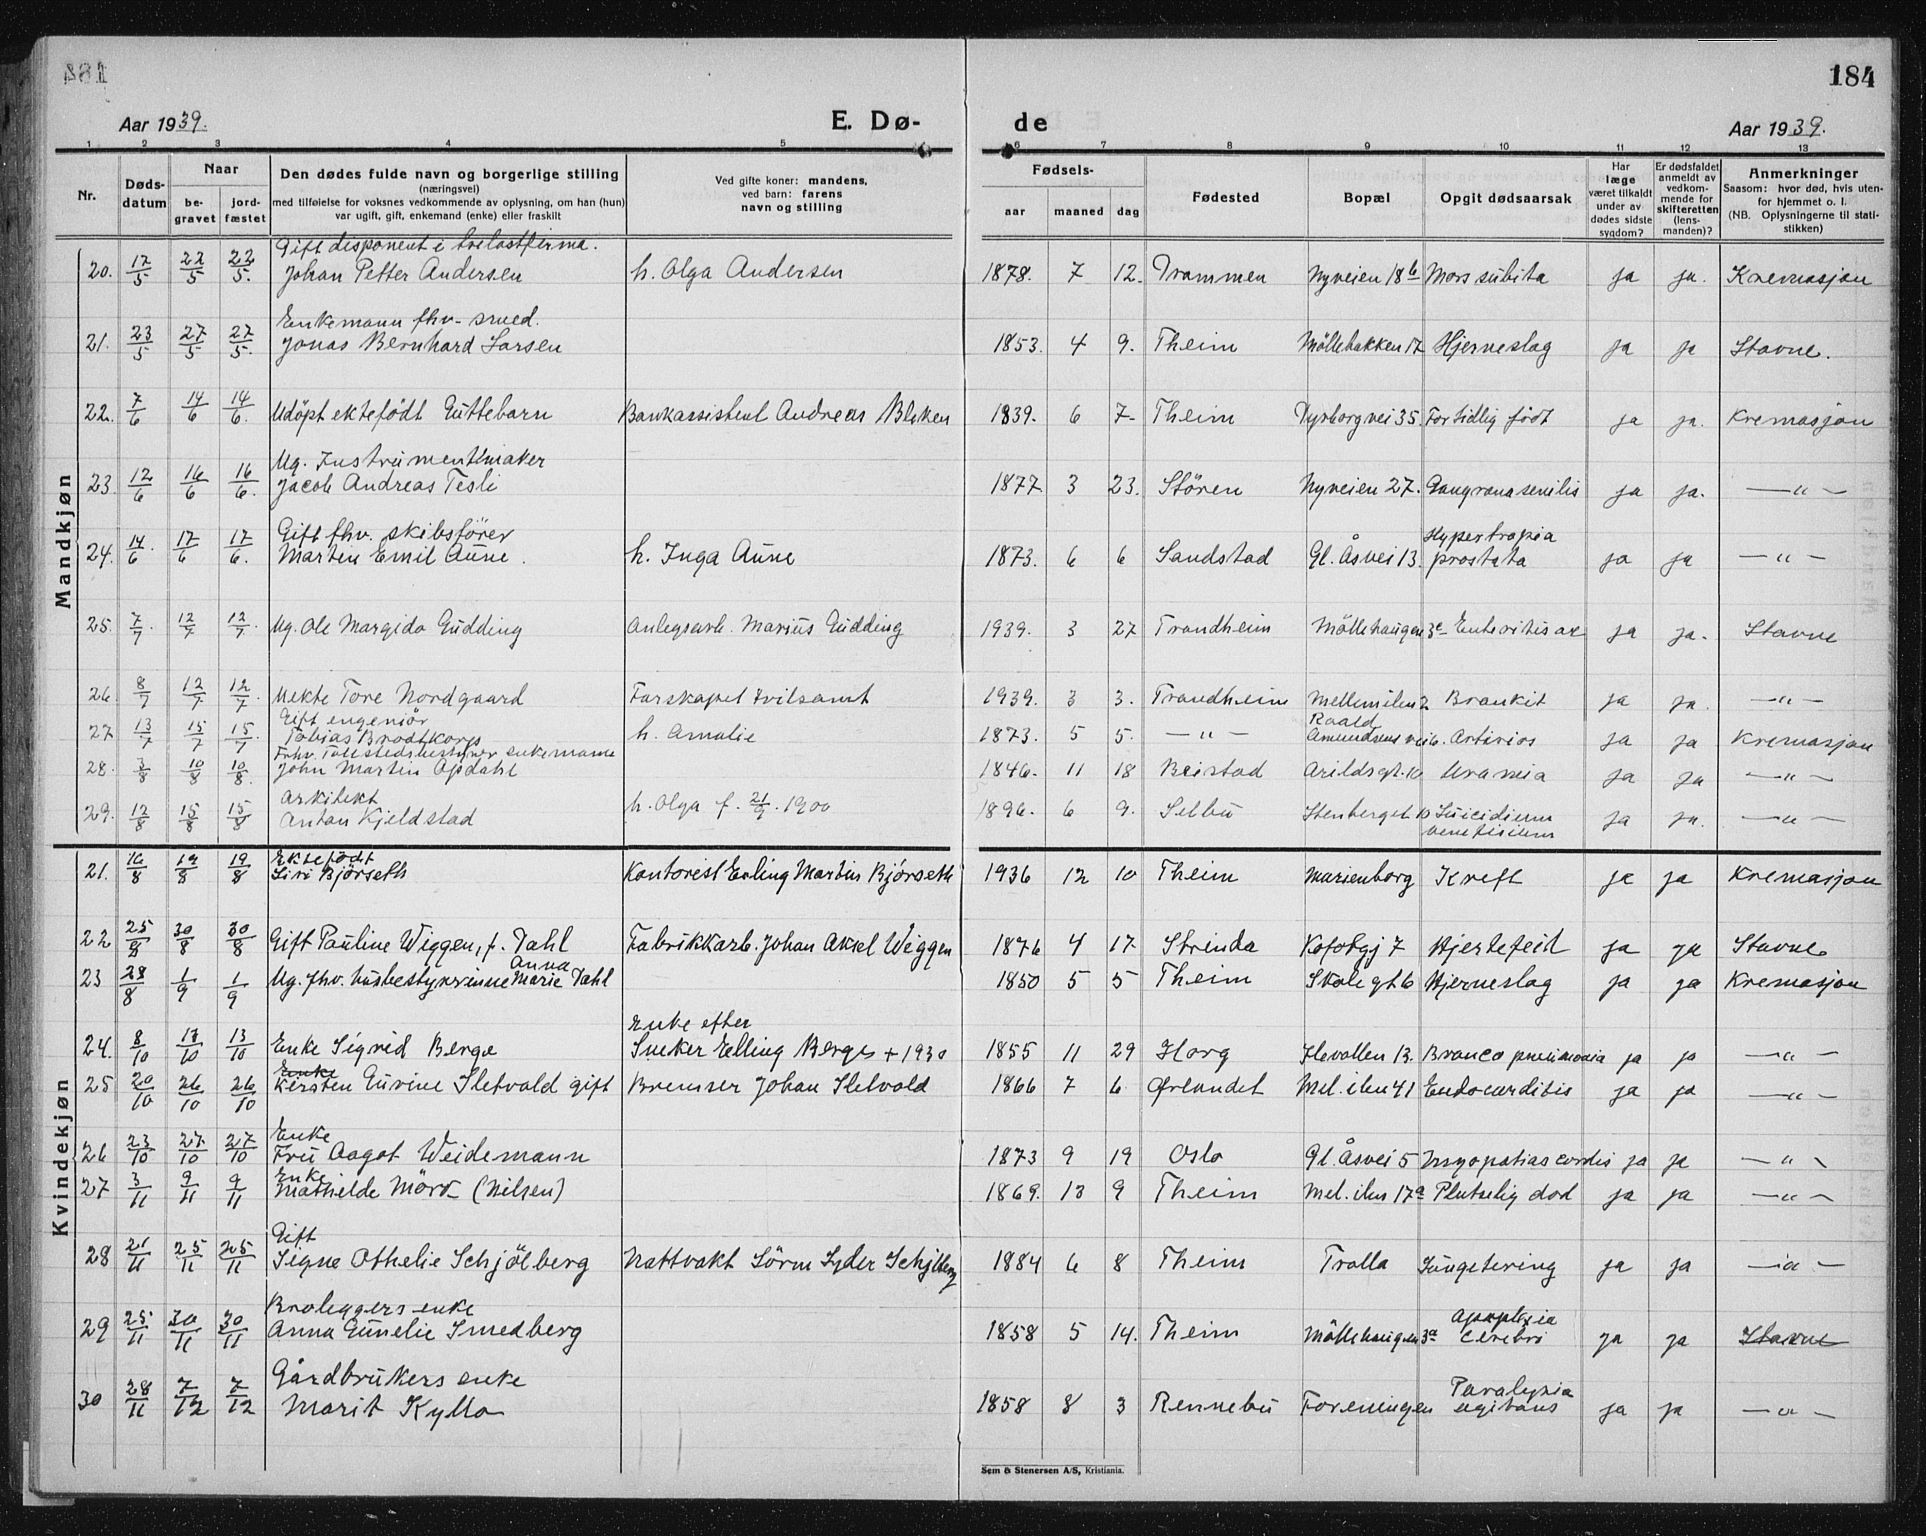 184
Aar 1939.
E. Dø-
de
Aar 1939.
1 2 3 4 5 6 7 8 9 10 11 12 13
Nr.
Døds-
datum
Naar
be-
gravet
jord-
fæstet
Den dødes fulde navn og borgerlige stilling
(næringsvei)
med tilføielse for voksnes vedkommende av oplysning, om han (hun)
var ugift, gift, enkemand (enke) eller fraskilt
Ved gifte koner: mandens,
ved barn: farens
navn og stilling
Fødsels-
aar maaned dag
Fødested
Bopæl
Opgit dødsaarsak
Har
læge
været tilkaldt
under av
dødes sidste
sygdom?
Er dødsfaldet
anmeldt av
vedkom-
mende for
skifteretten
(lens-
manden)?
Anmerkninger
Saasom: hvor død, hvis uten-
for hjemmet o. l.
(NB. Oplysningerne til stati-
stikken)
Mandkjøn
Gift disponent i trelastfirma.
20. 17/5 22/5 22/5. Johan Petter Andersen h. Olga Andersen 1878. 7 12. Drammen Nyveien 18b Mors subita ja ja. Kremasjon
Enkemann fhv. smed.
21. 23/5 27/5 27/5. Jonas Bernhard Larsen 1853. 4 9. Theim Möllebakken 17 Hjerneslag ja ja Stavne.
22. 7/6 14/6 14/6. Udöpt ektefödt Guttebarn Bankassistent Andreas Bleken 1839. 6 7 Theim Dyrborgvei 35. For tidlig födt ja ja. Kremasjon
Ug. Instrumentmaker
23. 12/6 16/6 16/6. Jacob Andreas Tesli 1877 3 23. Stören Nyveien 27. Gangrana senilis ja ja. —"—
Gift fhv. skibsförer
24. 14/6. 17/6 17/6. Marten Emil Aune. h. Inga Aune 1873. 6 6 Sandstad Gl. Åsvei 13. Hypertropia
prostata ja ja —"—
25. 7/7. 12/7 12/7. Ug. Ole Margido Gudding Anlegsarb. Marius Gudding 1939. 3 27 Trondheim Möllehaugen 3c Enteritis ac ja ja. Stavne
26. 8/7 12/7 12/7. Uekte Tore Nordgaard Farskapet tvilsomt 1939. 3 3. Trondheim Mellemilen 2 Bronkit ja ja. —"—
Gift engeniör
27 13/7 15/7 15/7. Tobias Brodtkorp h. Amalie 1873. 5 5. —"— Roald
Amundsens vei 6. Artirios ja ja Kremasjon
Frhv. Tollstedsbestyrer enkemann
28. 3/8 10/8 10/8. John Martin Opdahl 1846. 11 18 Beistad Arildsgt. 10 Uremia ja ja —"—
Arkitekt
29. 12/8 15/8 15/8 Anton Kjeldstad h. Olga f. 21/9. 1900 1896. 6 9. Selbu Stenberget 10 Suicidium
venefisium ja ja. —"—
Kvindekjøn
Ektefödt
21. 16/8 19/8 19/8 Siri Bjørseth Kontorist Erling Martin Bjørseth 1936 12 10 Theim Marienborg Kreft ja ja Kremasjon
22 25/8 30/8 30/8 Gift Pauline Wiggen, f. Dahl Fabrikkarb. Johan Aksel Wiggen 1876 4 17 Strinda Kofoegj 7 Hjertefeil ja ja Stavne
Anna
23 28/8 1/9 1/9 Ug. fhv. husbestyrerinne Marie Dahl 1850 5 5 Theim Skolegt 6 Hjerneslag ja ja Kremasjon
Enke efter
24. 8/10 13/10 13/10 Enke Sigrid Berge Sneker Elling Berges + 1930 1855 11 29 Horg Ilevollen 13. Bronco pneumonia ja ja —"—
Enke
25 20/10 26/10 26/10 Kirsten Gurine Sletvold gift Bremser Johan Sletvold 1866 7 6 Ørlandet Mel. ilen 41 Endocarditis ja ja —"—
Enke
26 23/10 27/10 27/10 Fru Aagot Weidemann 1873 9 19 Oslo Gl. Åsvei 5 Myopatias cordis ja ja —"—
Enke
27 3/11 9/11 9/11 Mathilde Mörd (Nilsen) 1869. 13 9 Theim Mel. ilen 17a Plutselig død ja ja —"—
Gift
28 21/11 25/11 25/11 Signe Othelie Schjölberg Nattvakt Sörm Lyder Schjölberg 1884 6 8 Theim Trolla Lungetering ja ja —"—
Broleggers enke
29 25/11 30/11 30/11 Anna Gunelie Smedberg 1858 5 14. Theim Möllehaugen 3a Apoplexia
cerebri ja ja Stavne
Gårdbrukers enke
30 28/11 7/12 7/12 Marit Kyllo 1858 8 3 Rennebu Foreningen Paralysia
agitans ja ja —"—
Sem & Stenersen A/S, Kristiania.